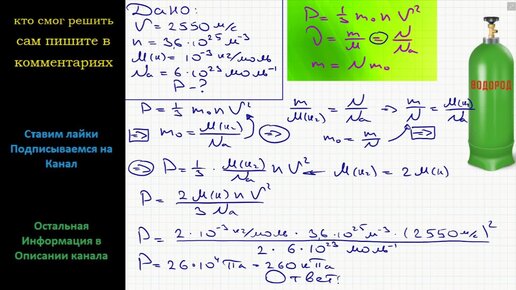 кто смог решить
сам пишите в
комментариях
Ставим лайки
Подписываемся на
Канал
Остальная
Информация в
Описании канала
Дано:
V = 2550 м/с
n = 3,6 · 10²⁵ м⁻³
M(н) = 10⁻³ кг/моль
Nₐ = 6 · 10²³ моль⁻¹
P - ?
P = 1/3 m₀ n V²
ν = m/M = N/Nₐ
m = N m₀
ВОДОРОД
P = 1/3 m₀ n V²
m/M(н₂) = N/Nₐ => m/N = M(н₂)/Nₐ
=> m₀ = M(н₂)/Nₐ => m₀ = m/N =>
=> P = 1/3 · M(н₂)/Nₐ n V² ← M(н₂) = 2 M(н)
P = 2 M(н) n V² / 3 Nₐ
P = 2 · 10⁻³ кг/моль · 3,6 · 10²⁵ м⁻³ · (2550 м/с)² / 2 · 6 · 10²³ моль⁻¹
P = 26 · 10⁴ Па = 260 кПа
Ответ: